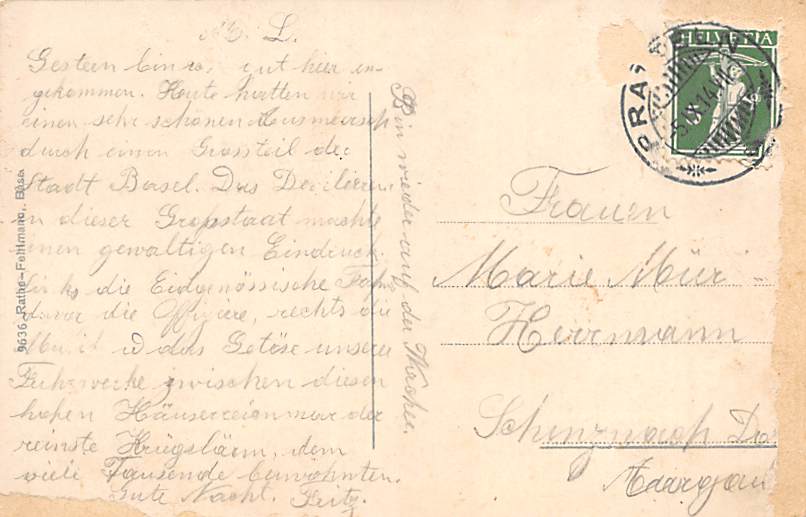 M. L.
Gestern bin ich gut hier an-
gekommen. Heute hatten wir
einen sehr schönen Ausmarsch
durch einen Grossteil der
Stadt Basel. Das Defilieren
in dieser Großstaat machte
einen gewaltigen Eindruck.
Links die Eidgenössische Fahne
davor die Offiziere, rechts die
Musik u das Getöse unserer
Fuhrwerke zwischen diesen
hohen Häuserreien war der
reinste Kriegslärm, dem
viele Tausende beiwohnten.
Gute Nacht. Fritz.
Bin wieder auf der Wache.
9636 Rathe-Fehlmann, Basel
HELVETIA
PRATTELN
Frauen
Marie Müri-
Herrmann
Schinznach Do
Aargau